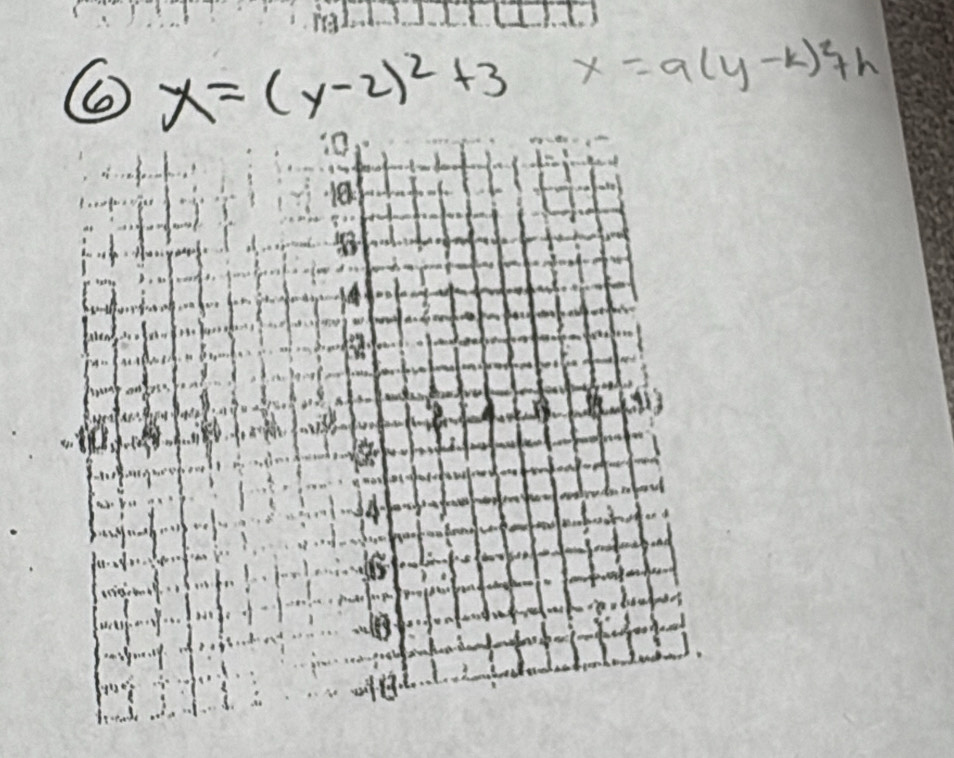 ⑥ x = (y-2)² + 3 x = a(y-k)² + h
10
8
6
4
2
-10 2 4 6 8 10
-4
-6
-8
-10